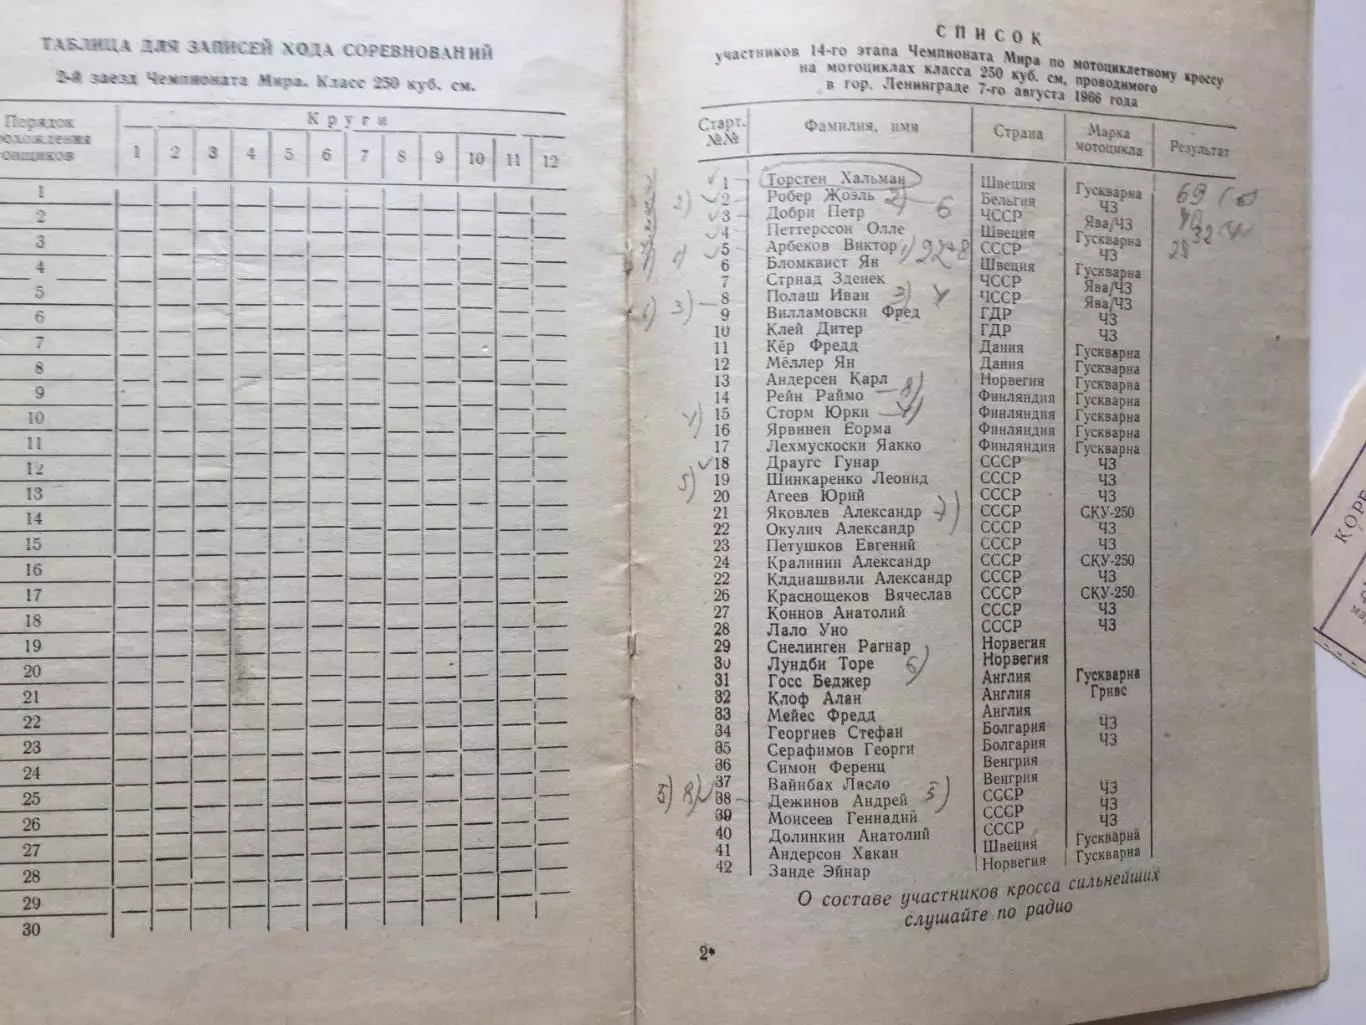 ТАБЛИЦА ДЛЯ ЗАПИСЕЙ ХОДА СОРЕВНОВАНИЙ
2-й заезд Чемпионата Мира. Класс 250 куб. см.
Порядок
Круги
1 2 3 4 5 6 7 8 9 10 11 12
1
2
3
4
5
6
7
8
9
10
11
12
13
14
15
16
17
18
19
20
21
22
23
24
25
26
27
28
29
30
СПИСОК
участников 14-го этапа Чемпионата Мира по мотоциклетному кроссу
на мотоциклах класса 250 куб. см, проводимого
в гор. Ленинграде 7-го августа 1966 года
Старт. №№ Фамилия, имя Страна Марка мотоцикла Результат
1 Торстен Хальман Швеция Гускварна 69
2) 2 Робер Жоэль 2) 6 Бельгия ЧЗ
3 Добри Петр ЧССР Ява/ЧЗ
4 Петтерссон Олле Швеция Гускварна 32
5 Арбеков Виктор 1) СССР ЧЗ
6 Бломквист Ян Швеция Гускварна
7 Стрнад Зденек ЧССР Ява/ЧЗ
3) 8 Полаш Иван 3) ЧССР Ява/ЧЗ
9 Вилламовски Фред ГДР ЧЗ
10 Клей Дитер ГДР ЧЗ
11 Кёр Фредд Дания Гускварна
12 Мёллер Ян Дания Гускварна
13 Андерсен Карл Норвегия Гускварна
14 Рейн Раймо 8) Финляндия Гускварна
4) 15 Сторм Юрки 4) Финляндия Гускварна
16 Ярвинен Еорма Финляндия Гускварна
17 Лехмускоски Яакко Финляндия Гускварна
18 Драугс Гунар СССР ЧЗ
5) 19 Шинкаренко Леонид СССР ЧЗ
20 Агеев Юрий СССР ЧЗ
21 Яковлев Александр 7) СССР СКУ-250
22 Окулич Александр СССР ЧЗ
23 Петушков Евгений СССР ЧЗ
24 Кралинин Александр СССР СКУ-250
22 Клдиашвили Александр СССР ЧЗ
26 Краснощеков Вячеслав СССР СКУ-250
27 Коннов Анатолий СССР ЧЗ
28 Лало Уно СССР ЧЗ
29 Снелинген Рагнар Норвегия
30 Лундби Торе 6) Норвегия
31 Госс Беджер Англия Гускварна
32 Клоф Алан Англия Гривс
33 Мейес Фредд Англия
34 Георгиев Стефан Болгария ЧЗ
35 Серафимов Георги Болгария ЧЗ
36 Симон Ференц Венгрия
37 Вайнбах Ласло Венгрия
5) 8) 38 Дежинов Андрей 5) СССР ЧЗ
39 Моисеев Геннадий СССР ЧЗ
40 Долинкин Анатолий СССР ЧЗ
41 Андерсон Хакан Швеция Гускварна
42 Занде Эйнар Норвегия Гускварна
О составе участников кросса сильнейших
слушайте по радио
2*